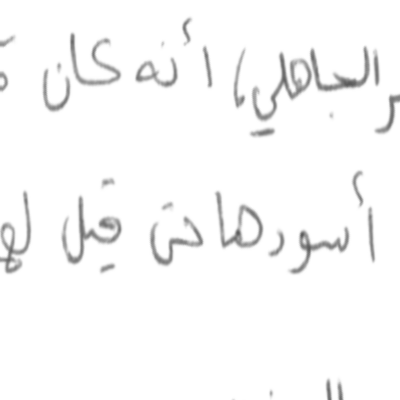 الجاهلي، أنه كان
أسودها حتى قيل لها